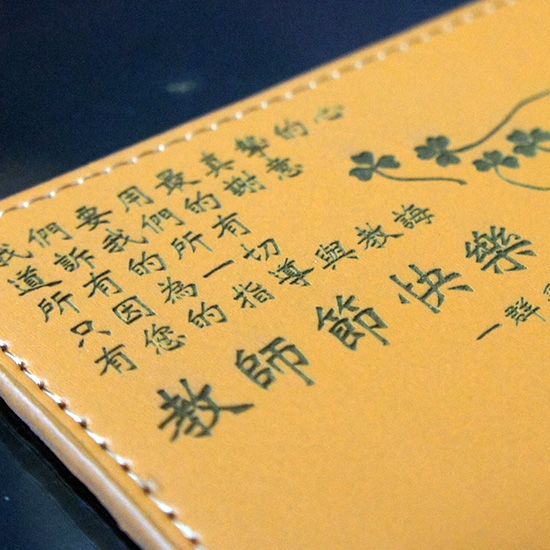 我們要用最真摯的心
道訴我們的謝意
所有的所有
只因為一切
有您的指導與教誨
教師節快樂
一群